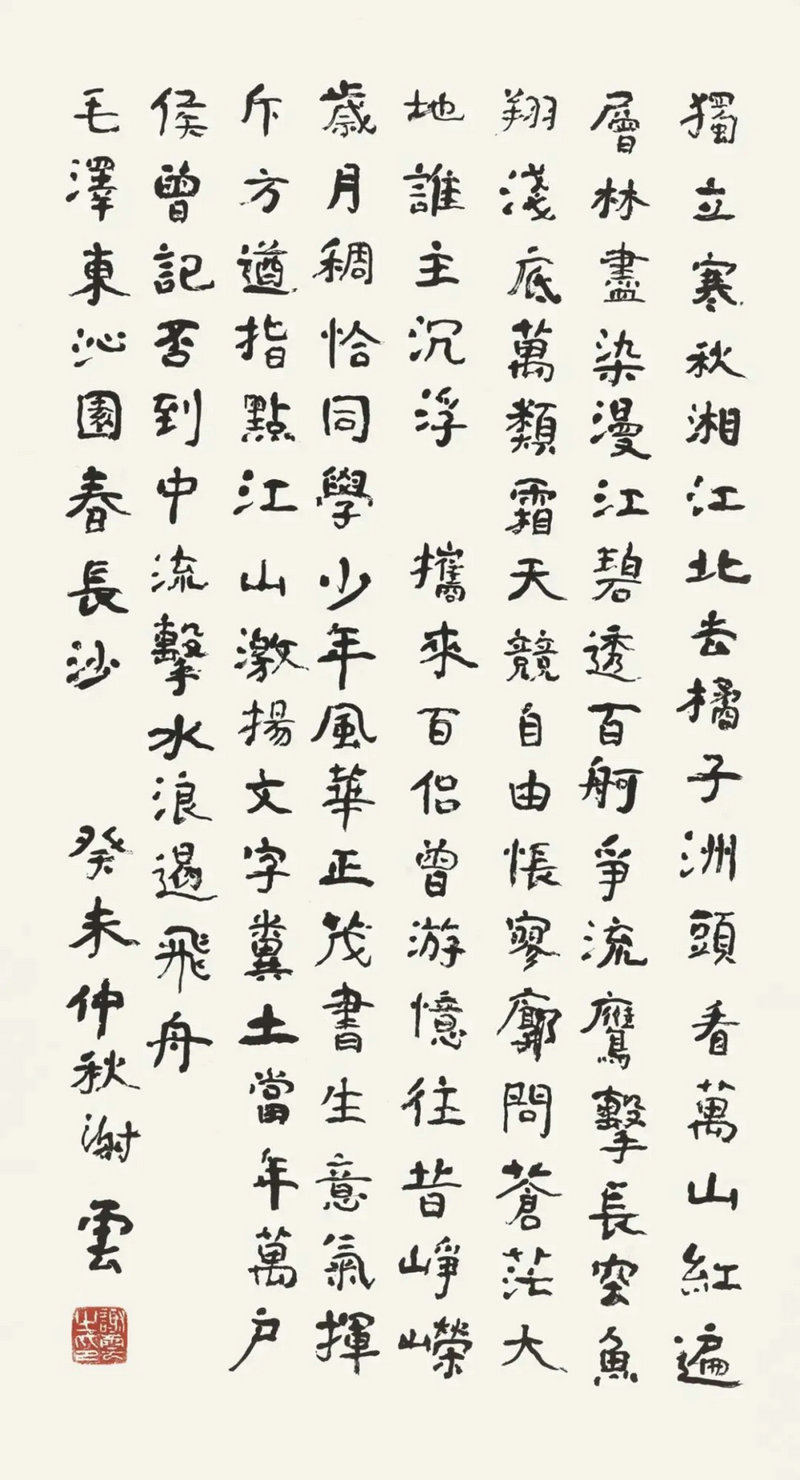 獨立寒秋湘江北去橘子洲頭看萬山紅遍
層林盡染漫江碧透百舸爭流鷹擊長空魚
翔淺底萬類霜天競自由悵寥廓問蒼茫大
地誰主沉浮 攜來百侶曾游憶往昔崢嶸
歲月稠恰同學少年風華正茂書生意氣揮
斥方遒指點江山激揚文字糞土當年萬户
侯曾記否到中流擊水浪遏飛舟
毛澤東沁園春長沙 癸未仲秋謝雲
謝雲